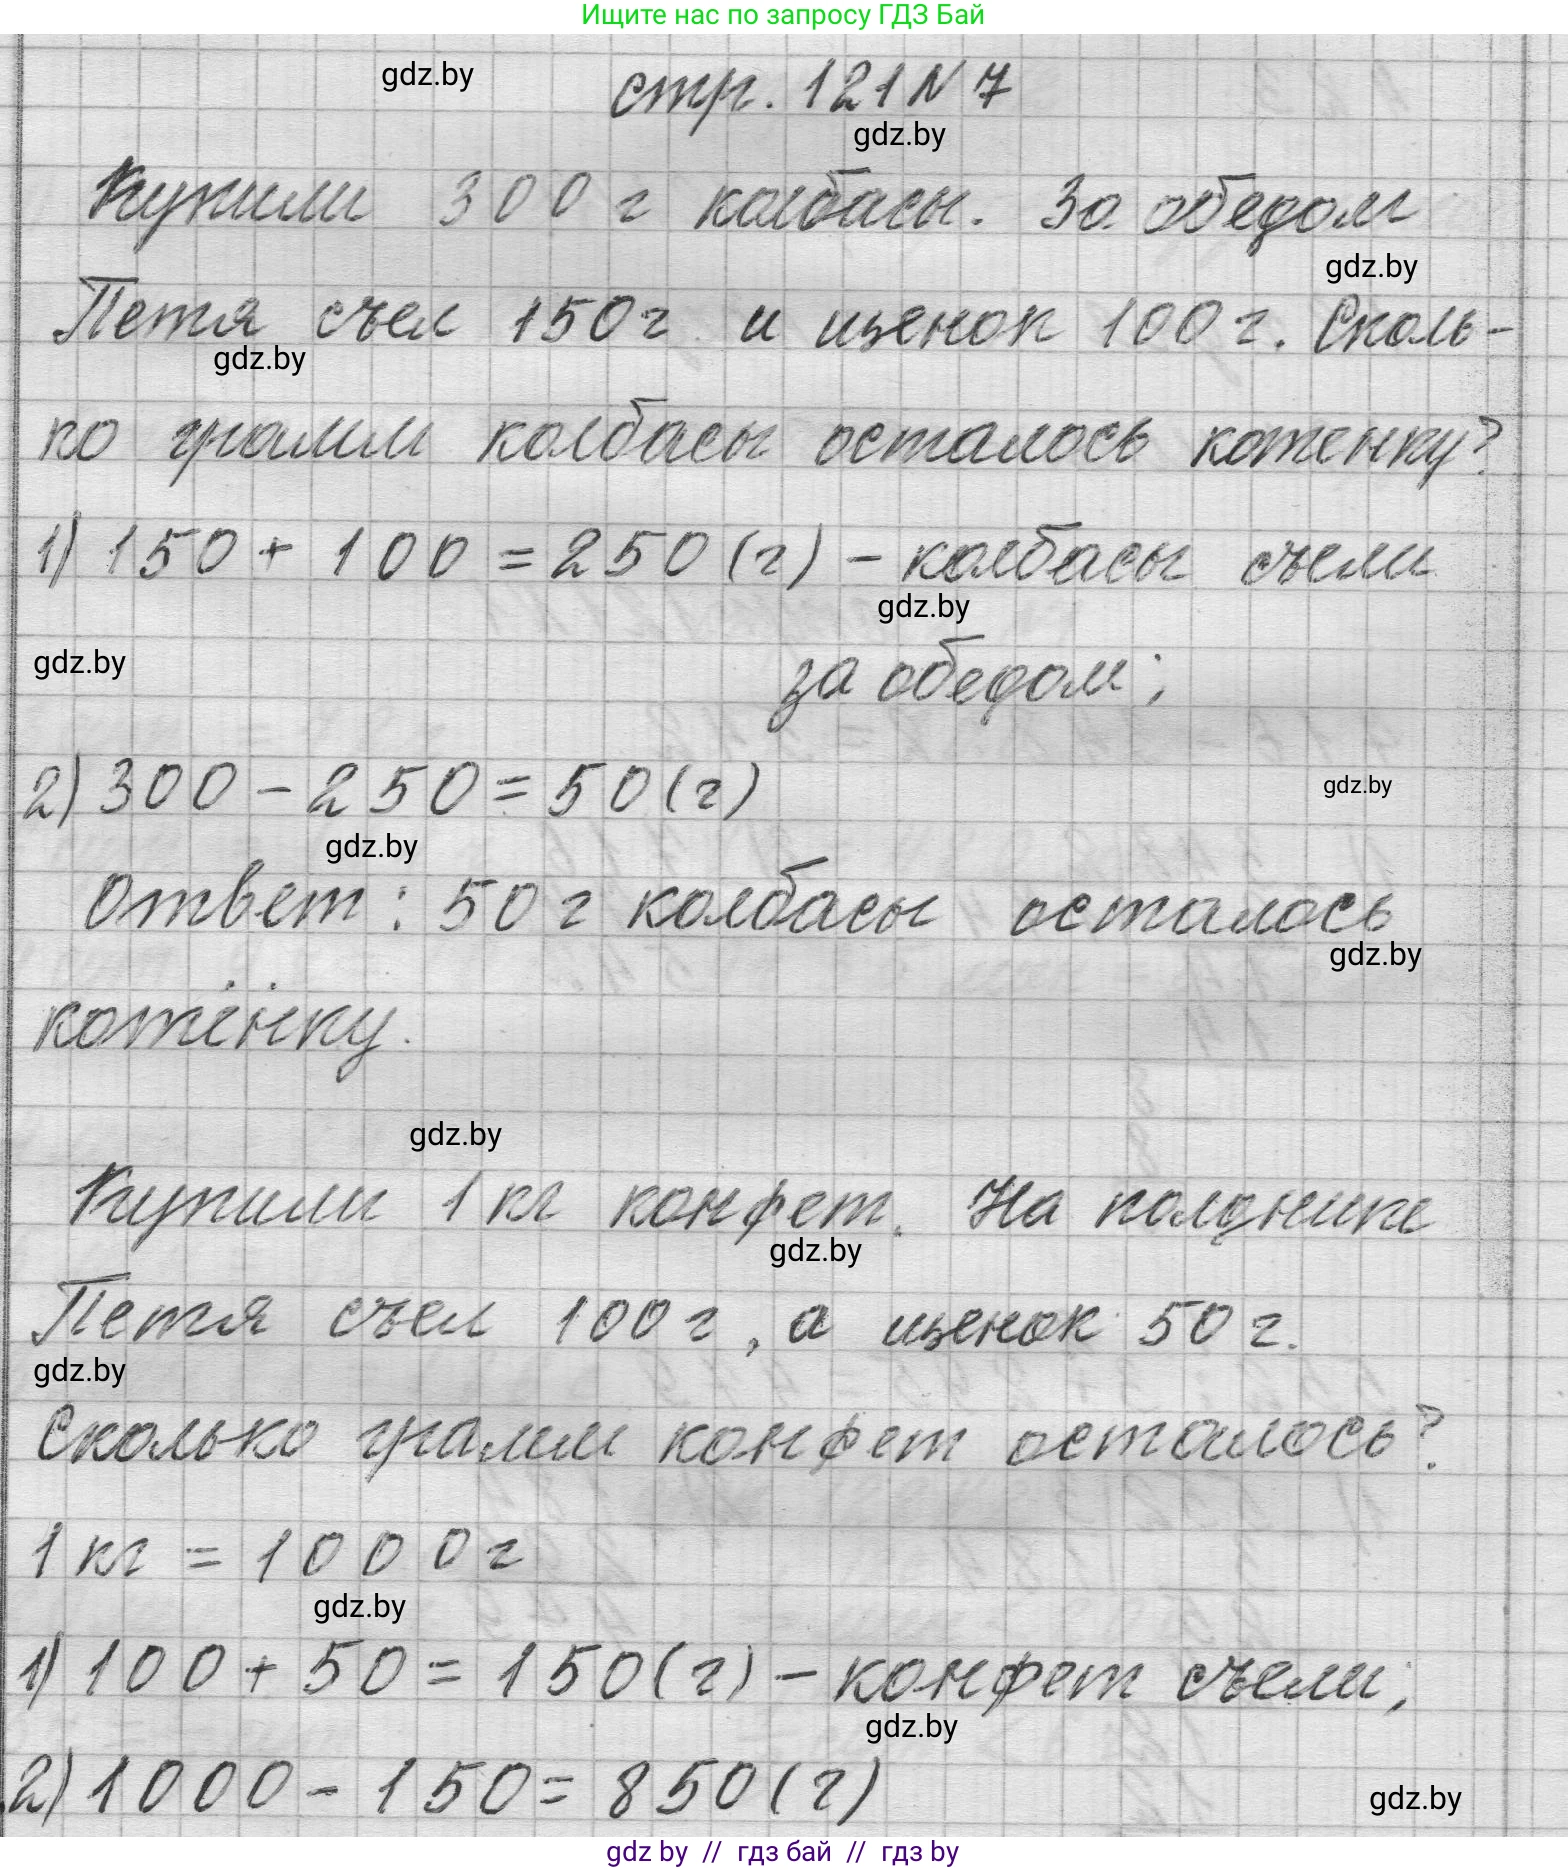 Ищите нас по запросу ГДЗ Бай
gdz.by
стр. 121 N 7
gdz.by
Купили 300 г колбасы. За обедом
gdz.by
Петя съел 150 г и щенок 100 г. Сколь-
gdz.by
ко грамм колбасы осталось котенку?
1) 150 + 100 = 250 (г) - колбасы съели
gdz.by
gdz.by
за обедом;
2) 300 - 250 = 50 (г)
gdz.by
gdz.by
Ответ: 50 г колбасы осталось
gdz.by
котёнку.
gdz.by
Купили 1 кг конфет. На полднике
gdz.by
Петя съел 100 г, а щенок 50 г.
gdz.by
Сколько грамм конфет осталось?
1 кг = 1000 г
gdz.by
1) 100 + 50 = 150 (г) - конфет съели;
gdz.by
2) 1000 - 150 = 850 (г)
gdz.by
gdz by // гдз бай // gdz by